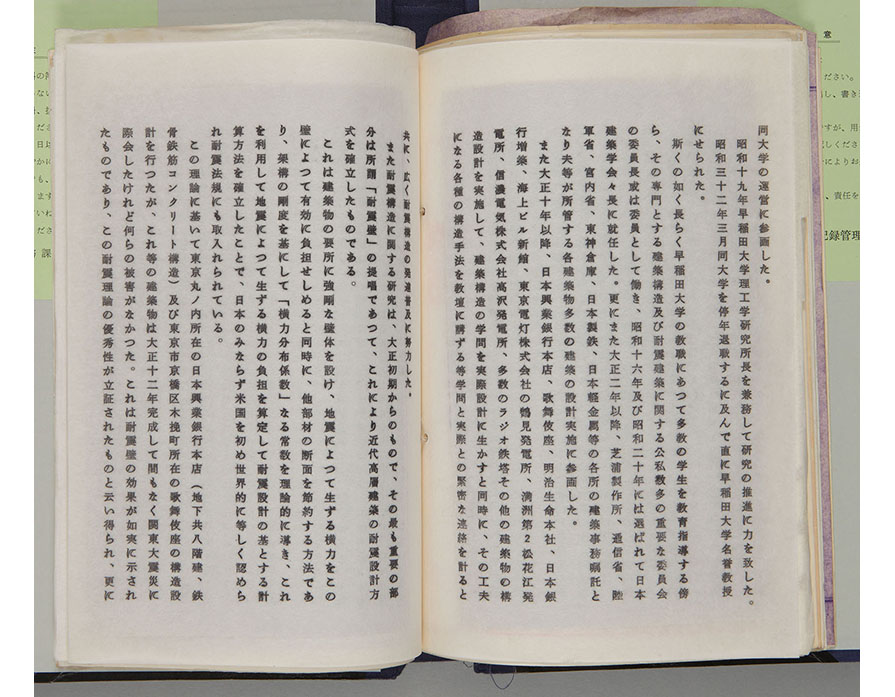 同大学の運営に参画した。
昭和十九年早稲田大学理工学研究所長を兼務して研究の推進に力を致した。
昭和三十二年三月同大学を停年退職するに及んで直に早稲田大学名誉教授
にせられた。
斯くの如く長らく早稲田大学の教職にあつて多数の学生を教育指導する傍
ら、その専門とする建築構造及び耐震建築に関する公私数多の重要な委員会
の委員長或は委員として働き、昭和十六年及び昭和二十年には選ばれて日本
建築学会々長に就任した。更にまた大正二年以降、芝浦製作所、逓信省、陸
軍省、宮内省、東神倉庫、日本製鉄、日本軽金属等の各所の建築事務嘱託と
なり夫等が所管する各建築物多数の建築の設計実施に参画した。
また大正十年以降、日本興業銀行本店、歌舞伎座、明治生命本社、日本銀
行増築、海上ビル新館、東京電灯株式会社の鶴見発電所、満洲第2松花江発
電所、信濃電気株式会社高沢発電所、多数のラジオ鉄塔その他の建築物の構
造設計を実施して、建築構造の学問を実際設計に生かすと同時に、その工夫
になる各種の構造手法を教壇に講ずる等学問と実際との緊密な連絡を計ると
共に、広く耐震構造の発達普及に努力した。
また耐震構造に関する研究は、大正初期からのもので、その最も重要の部
分は所謂「耐震壁」の提唱であつて、これにより近代高層建築の耐震設計方
式を確立したものである。
これは建築物の要所に強剛な壁体を設け、地震によつて生ずる横力をこの
壁によつて有効に負担せしめると同時に、他部材の断面を節約する方法であ
り、架構の剛度を基にして「横力分布係数」なる常数を理論的に導き、これ
を利用して地震によつて生ずる横力の負担を算定して耐震設計の基とする計
算方法を確立したことで、日本のみならず米国を初め世界的に等しく認めら
れ耐震法規にも取入れられている。
この理論に基いて東京丸ノ内所在の日本興業銀行本店（地下共八階建、鉄
骨鉄筋コンクリート構造）及び東京市京橋区木挽町所在の歌舞伎座の構造設
計を行つたが、これ等の建築物は大正十二年完成して間もなく関東大震災に
際会したけれど何らの被害がなかつた。これは耐震壁の効果が如実に示され
たものであり、この耐震理論の優秀性が立証されたものと云い得られ、更に